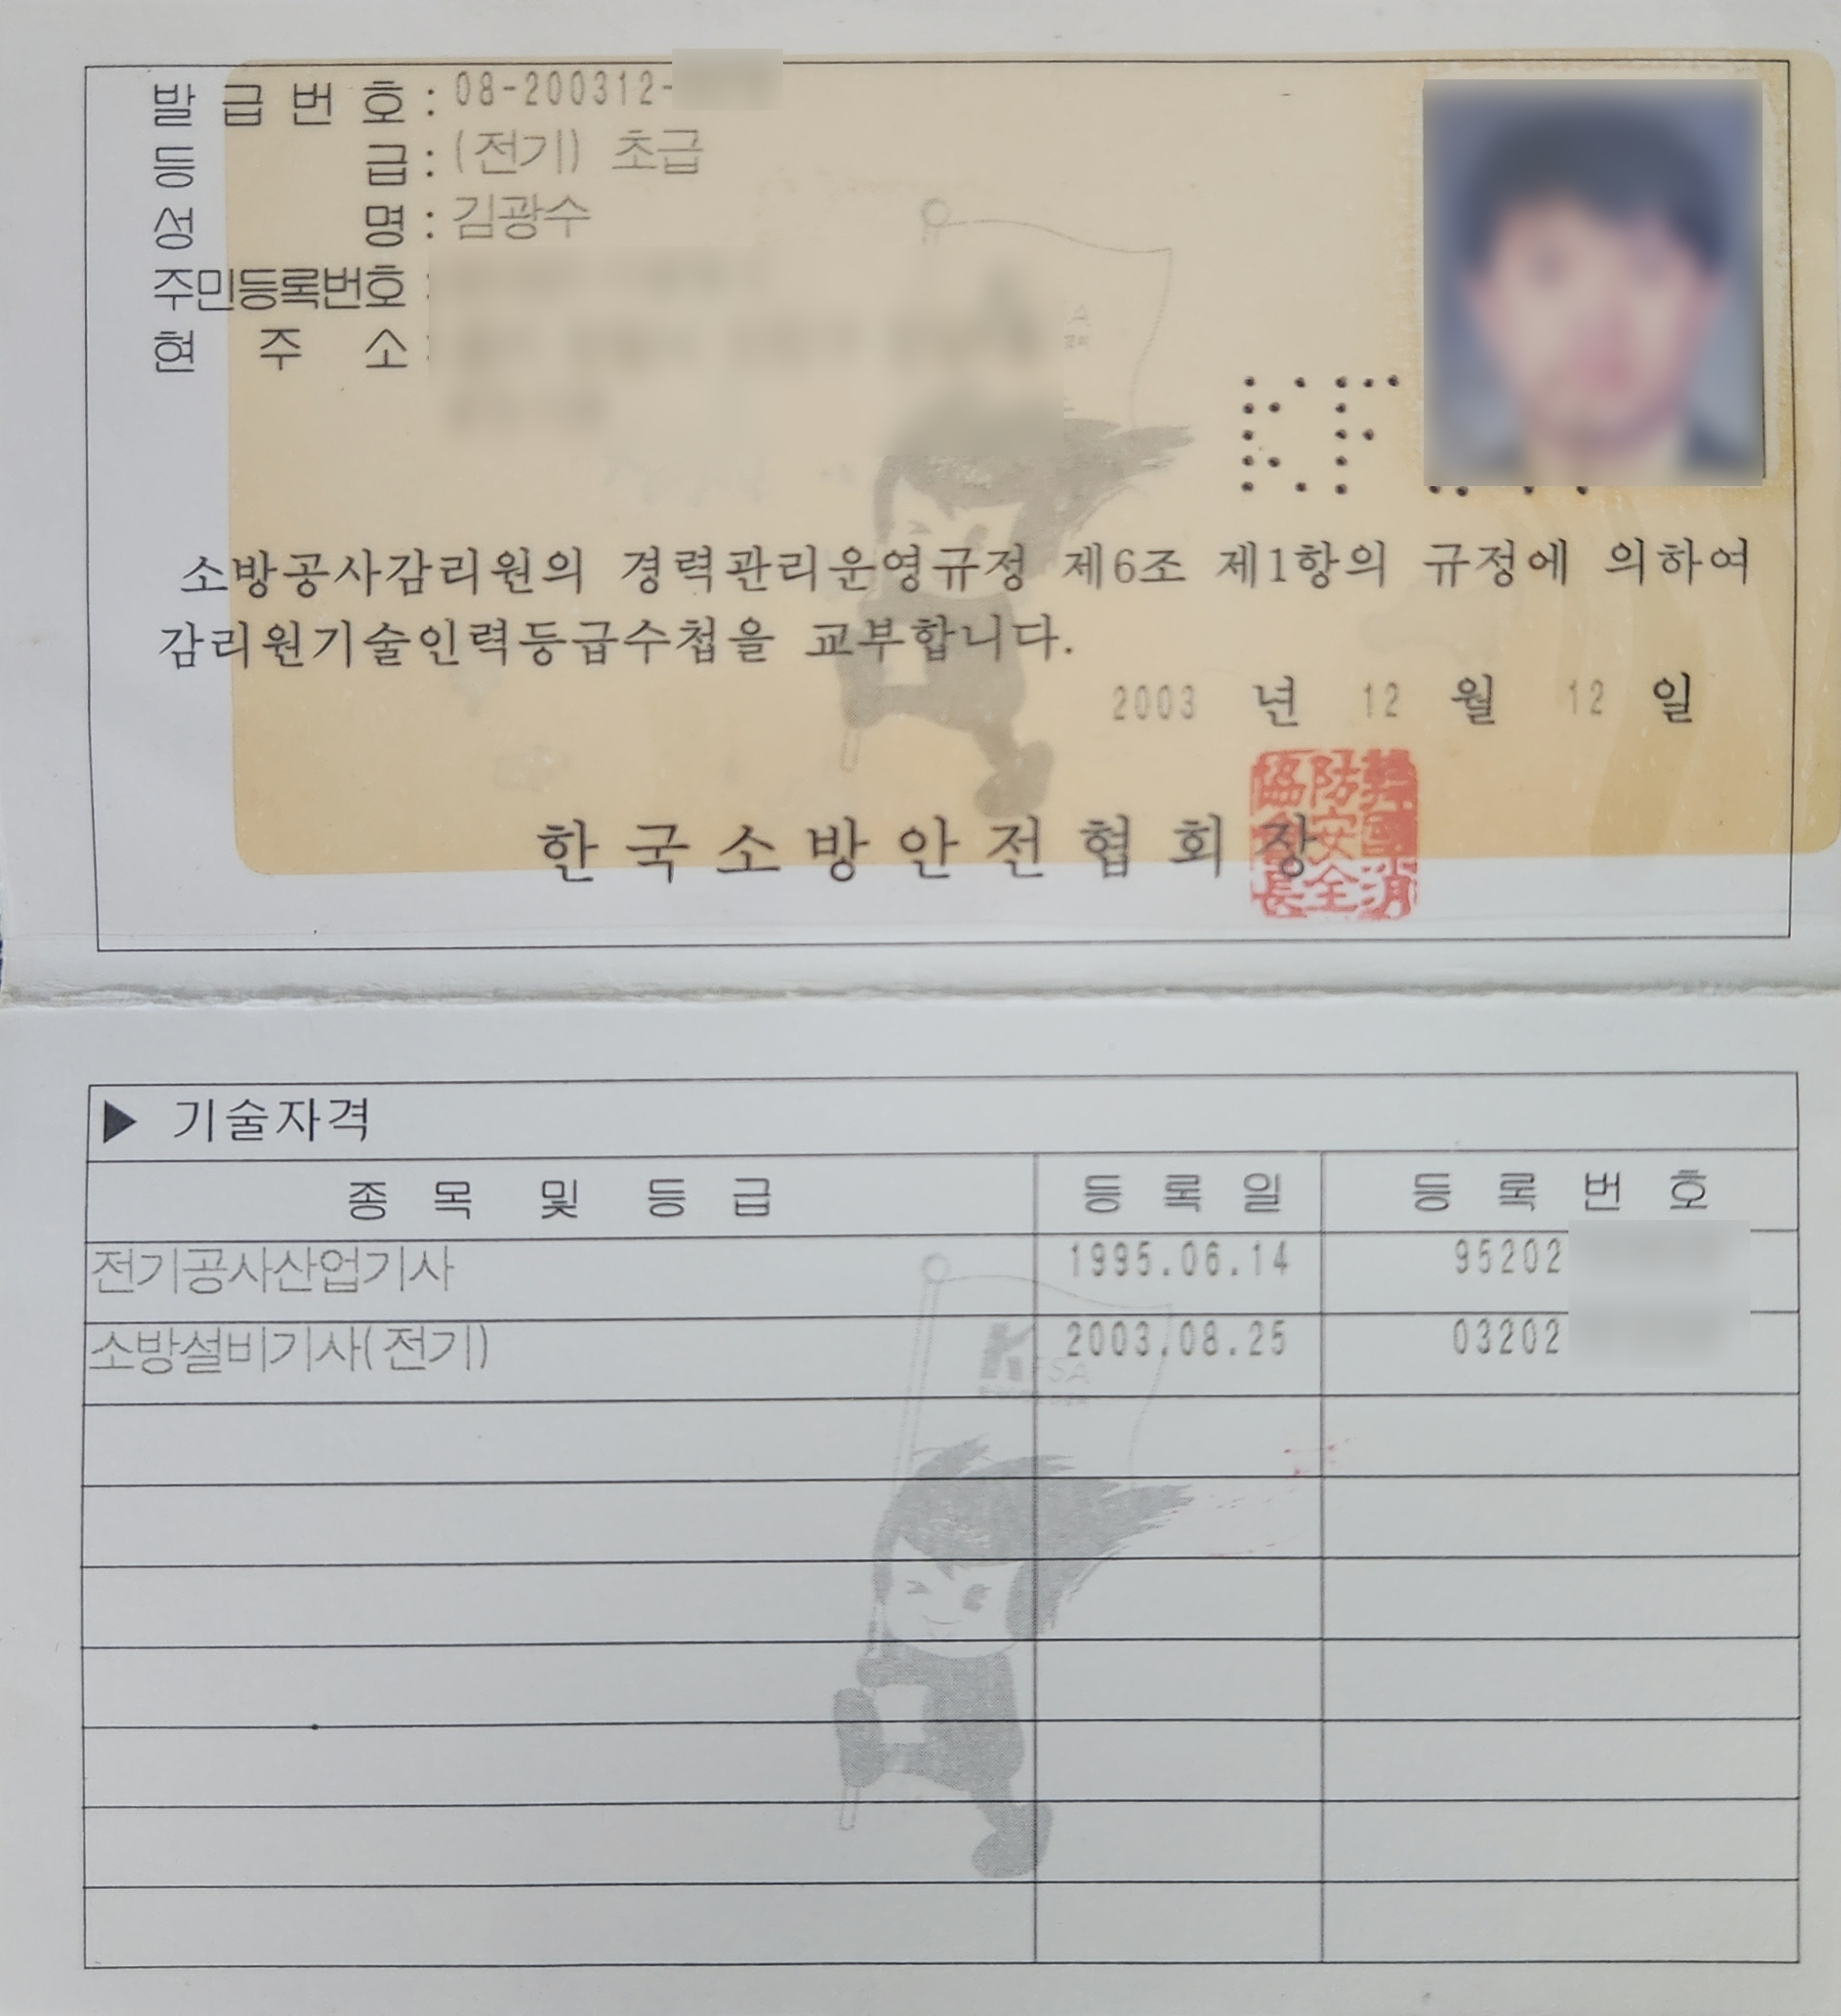 발 급 번 호 : 08-200312-
등 급 : (전기) 초급
성 명 : 김광수
주민등록번호 :
현 주 소 :
소방공사감리원의 경력관리운영규정 제6조 제1항의 규정에 의하여
감리원기술인력등급수첩을 교부합니다.
2003 년 12 월 12 일
한국소방안전협회장
▶ 기술자격
종 목 및 등 급 등 록 일 등 록 번 호
전기공사산업기사 1995.06.14 95202
소방설비기사(전기) 2003.08.25 03202